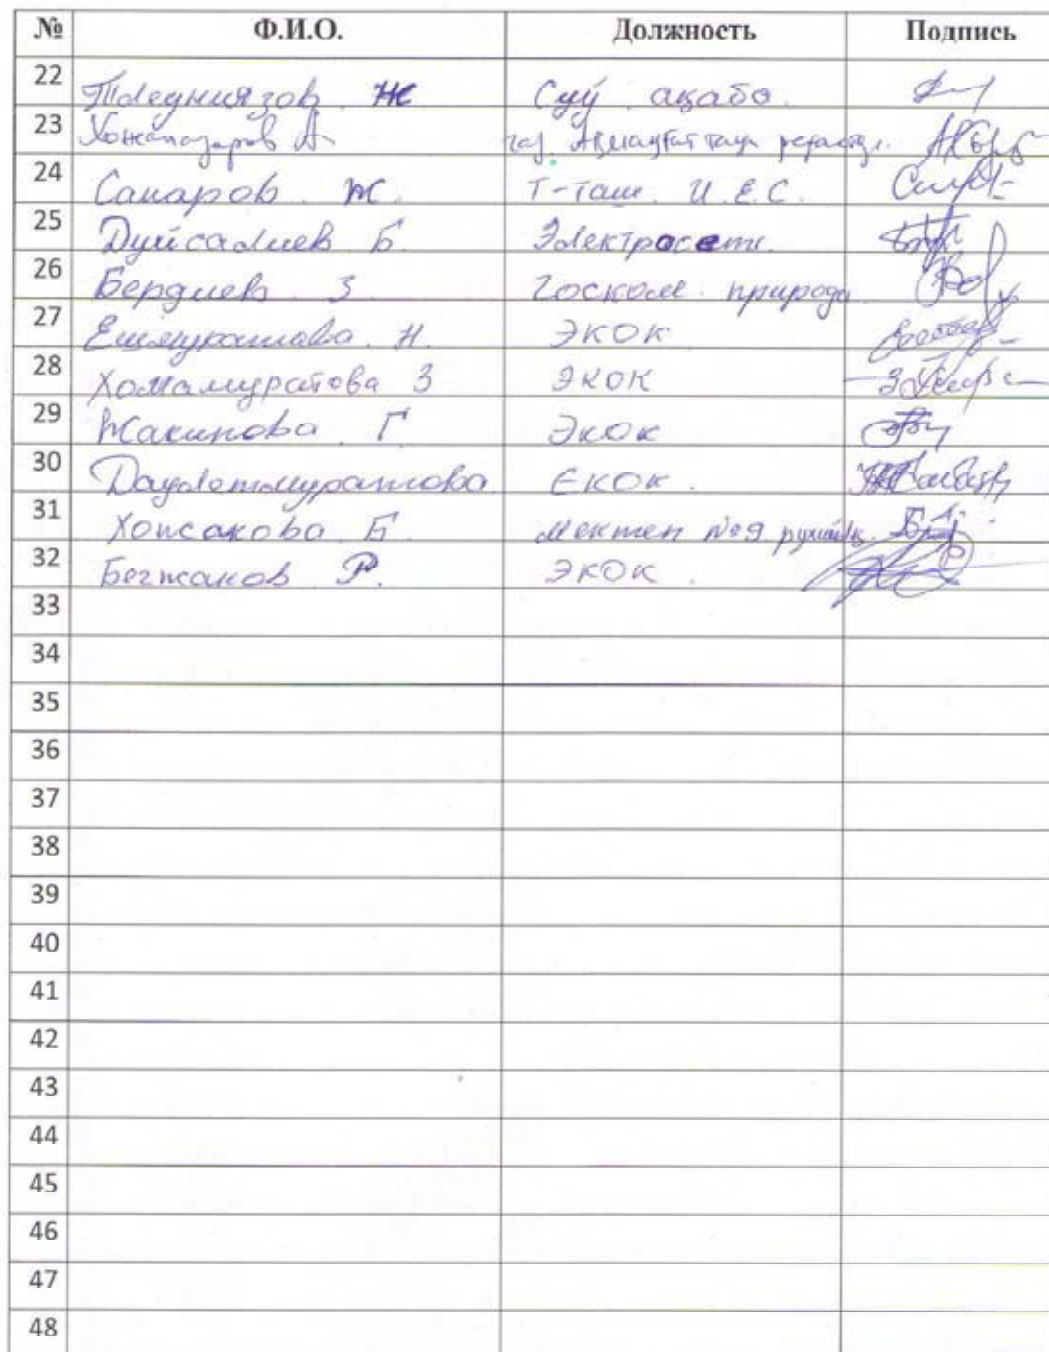 № Ф.И.О. Должность Подпись
22 Тлеуниязов Ж Суў ақаба.
23 Хожаназаров А. газ.
24 Сапаров Ж. Т-Таш И.Е.С.
25 Дуйсалиев Б. Электросети.
26 Бердиев З Госком. природа
27 Ешмуратова Н. ЭКОК
28 Хожамуратова З ЭКОК
29 Жакипова Г ЭКОК
30 Даулетмуратова ЕКОК.
31 Хопсакова Б. Мектеп №9
32 Бегжанов Р. ЭКОК.
33
34
35
36
37
38
39
40
41
42
43
44
45
46
47
48